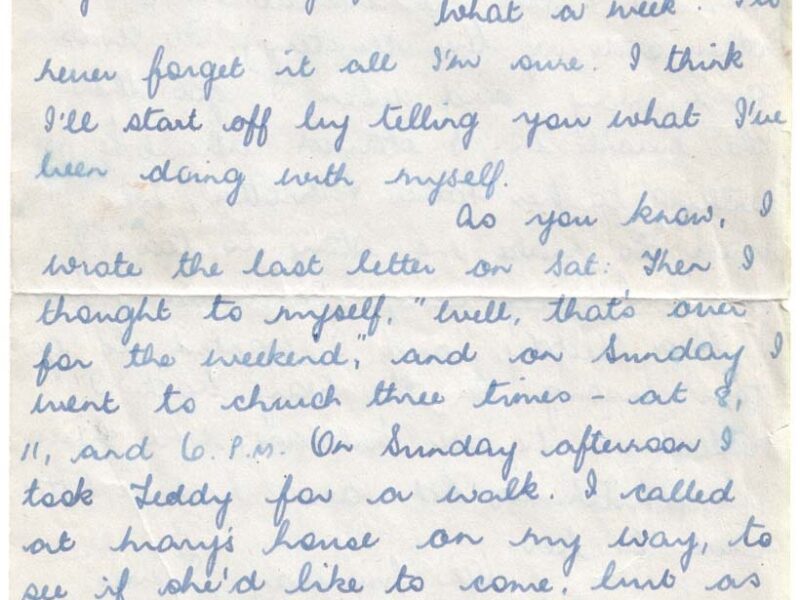 what a week. I'll
never forget it all I'm sure. I think
I'll start off by telling you what I've
been doing with myself.
As you know, I
wrote the last letter on Sat: Then I
thought to myself, "Well, that's over
for the weekend," and on Sunday I
went to church three times - at 8,
11, and 6. P.M. On Sunday afternoon I
took Teddy for a walk. I called
at Mary's house on my way, to
see if she'd like to come, but as